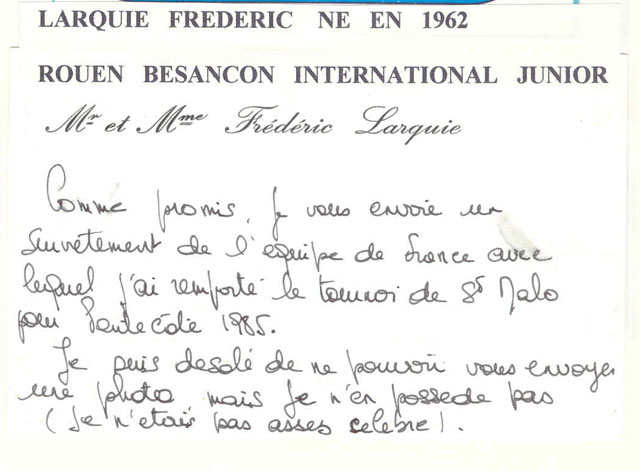 LARQUIE FREDERIC NE EN 1962
ROUEN BESANCON INTERNATIONAL JUNIOR
Mr et Mme Frédéric Larquie
Comme promis, je vous envoie un
survêtement de l'equipe de france avec
lequel j'ai remporté le tournoi de St Malo
pour Pentecôte 1985.
Je suis desolé de ne pouvoir vous envoyer
une photo mais je n'en possede pas
(je n'étais pas asses celebre).